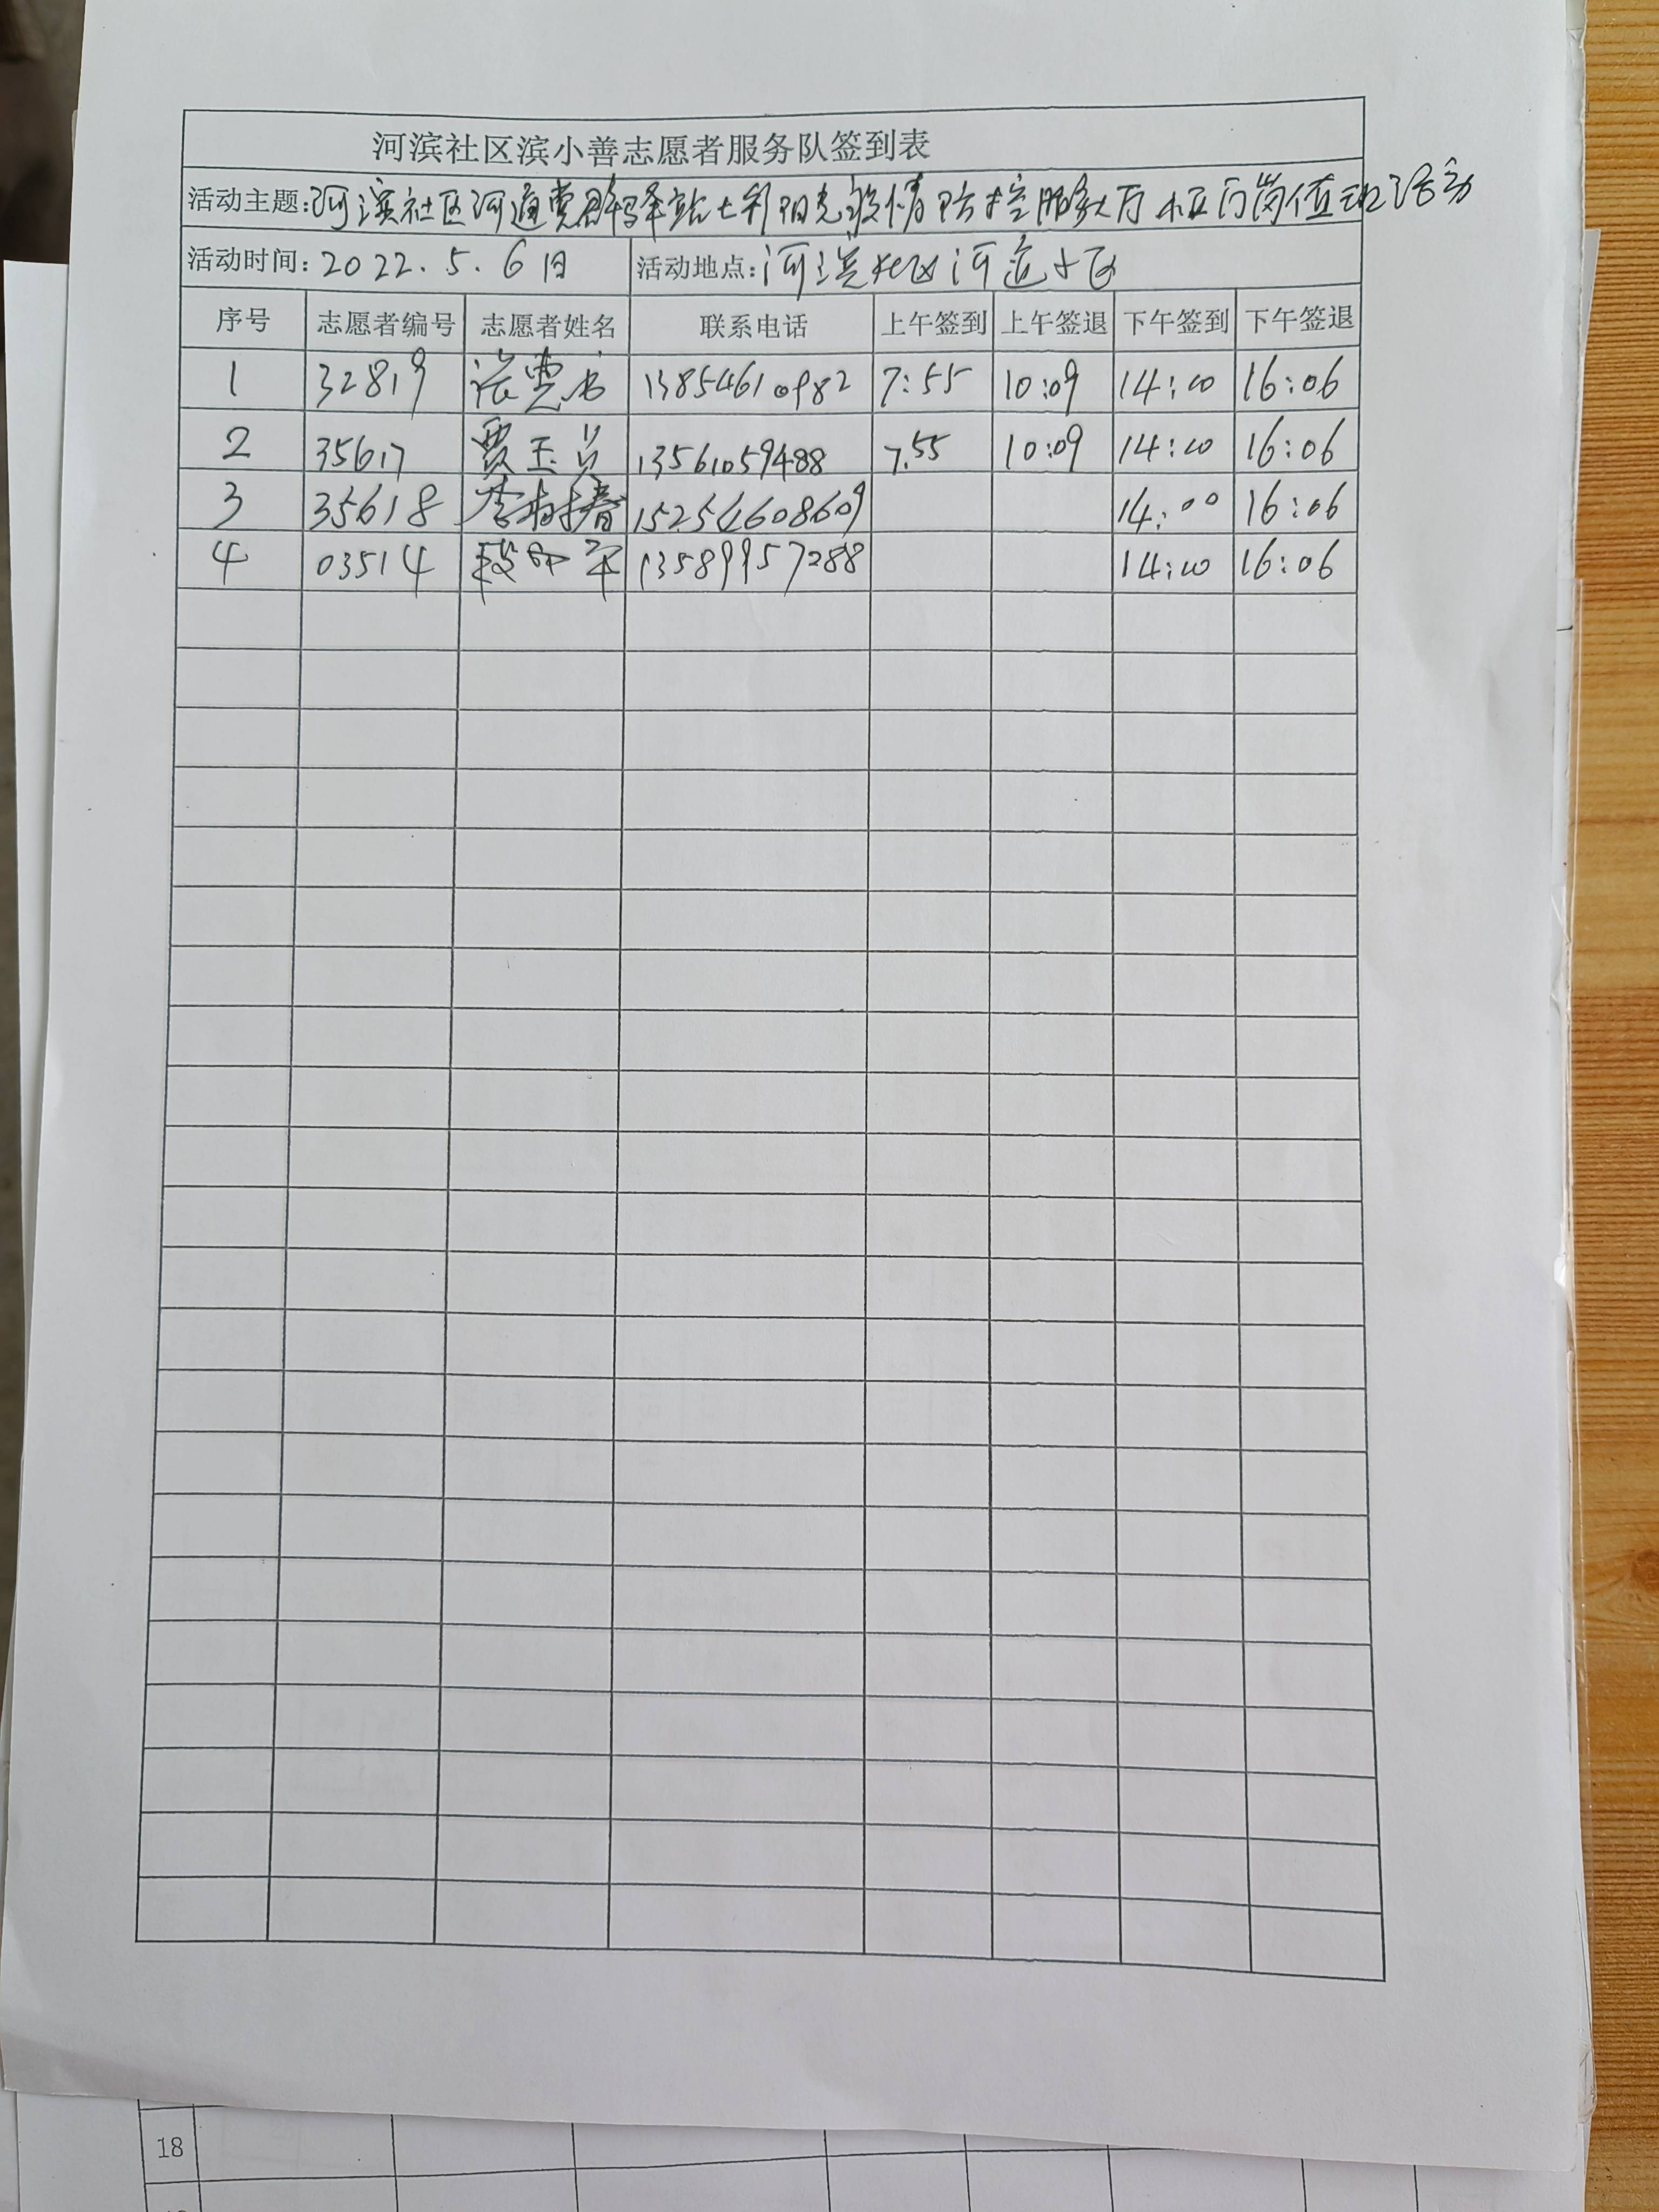 河滨社区滨小善志愿者服务队签到表
活动主题:河滨社区河通党群驿站七彩阳光疫情防控服务大厅 值班活动
活动时间:2022.5.6日 活动地点:河滨社区河通小区
序号 志愿者编号 志愿者姓名 联系电话 上午签到 上午签退 下午签到 下午签退
1 32819 13854610982 7:55 10:09 14:00 16:06
2 35617 贾玉 13561059488 7.55 10:09 14:00 16:06
3 35618 李树春 152546608609 14:00 16:06
4 03514 13589957288 14:00 16:06
18